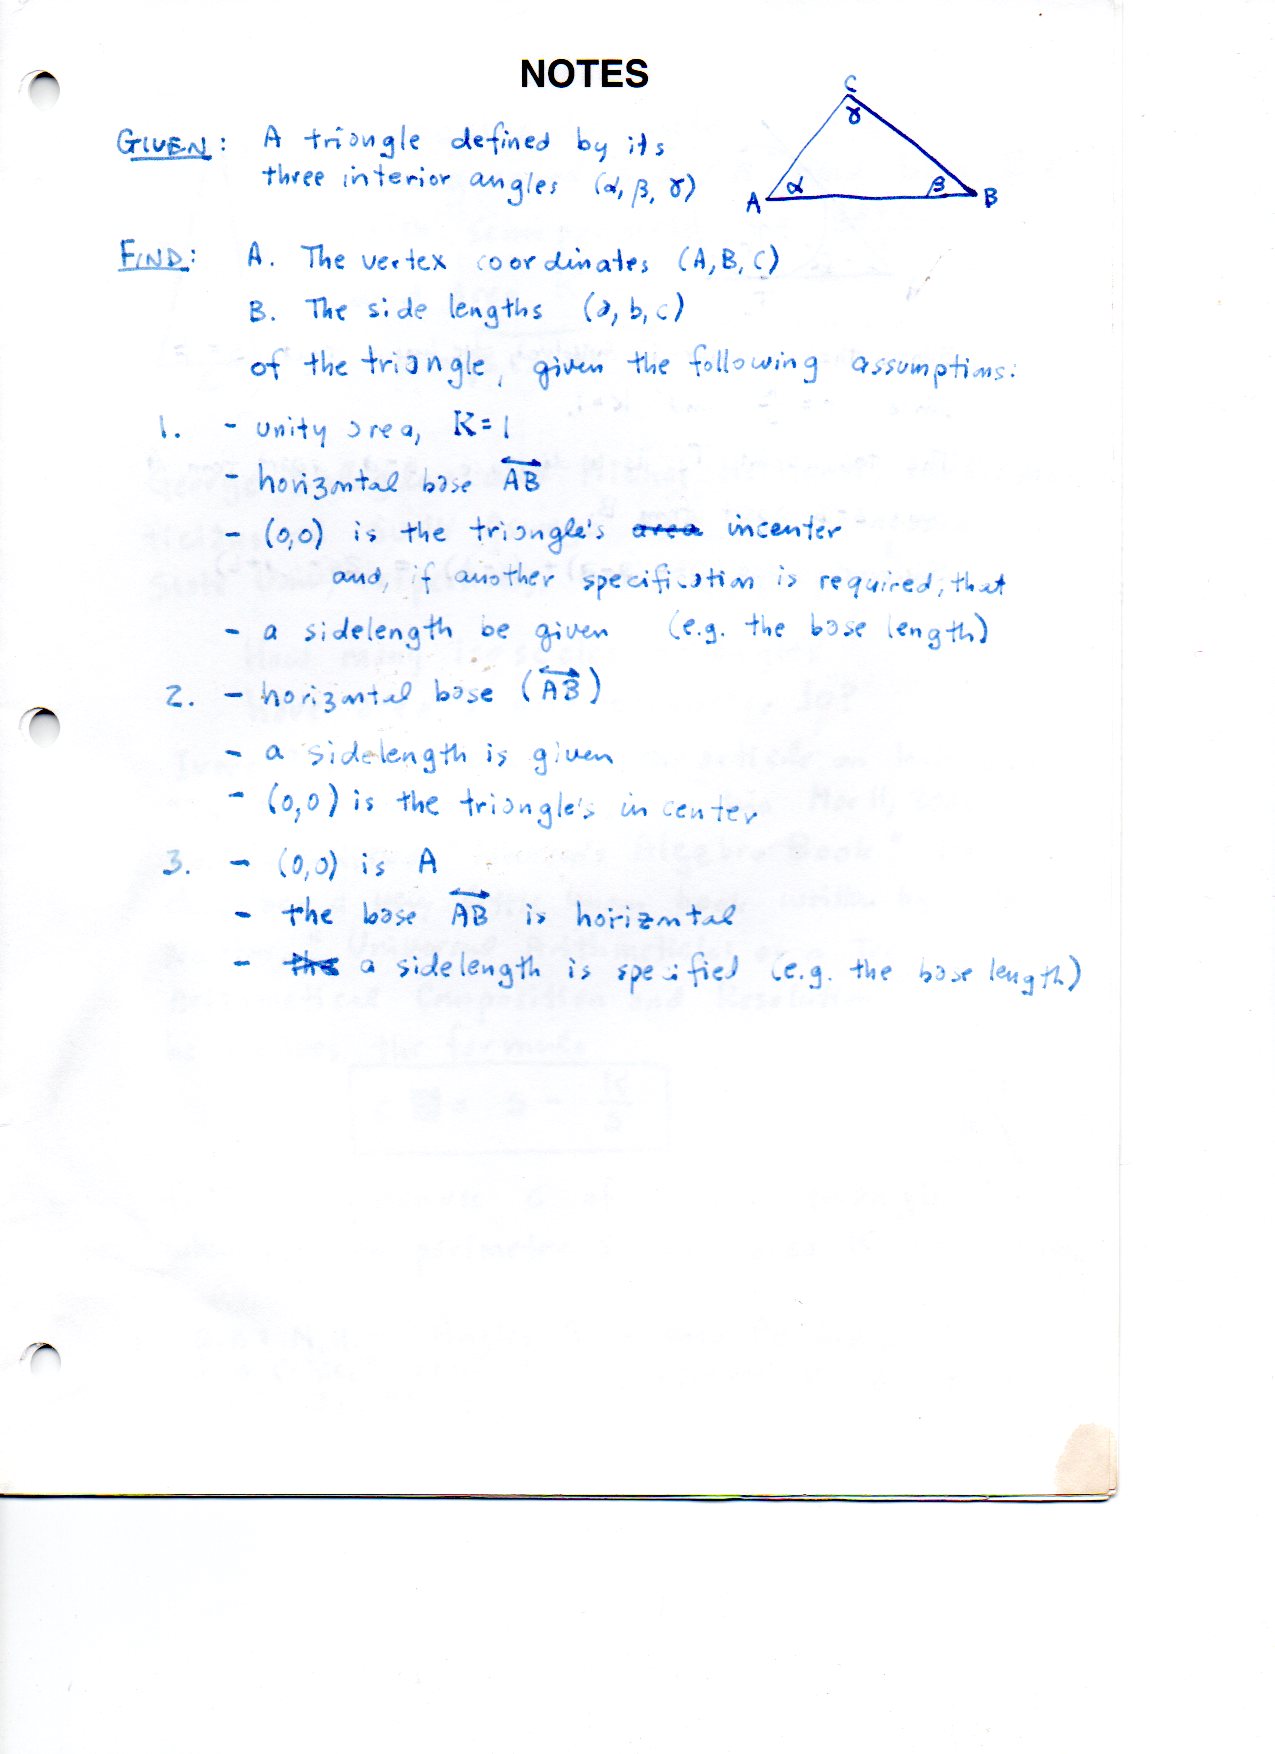 NOTES
GIVEN: A triangle defined by its
three interior angles (α, β, γ)
C
γ
A
α
β
B
FIND: A. The vertex coordinates (A, B, C)
B. The side lengths (a, b, c)
of the triangle, given the following assumptions:
1. - unity area, K=1
- horizontal base AB
- (0,0) is the triangle's area incenter
and, if another specification is required, that
- a sidelength be given (e.g. the base length)
2. - horizontal base (AB)
- a sidelength is given
- (0,0) is the triangle's incenter
3. - (0,0) is A
- the base AB is horizontal
- the a sidelength is specified (e.g. the base length)